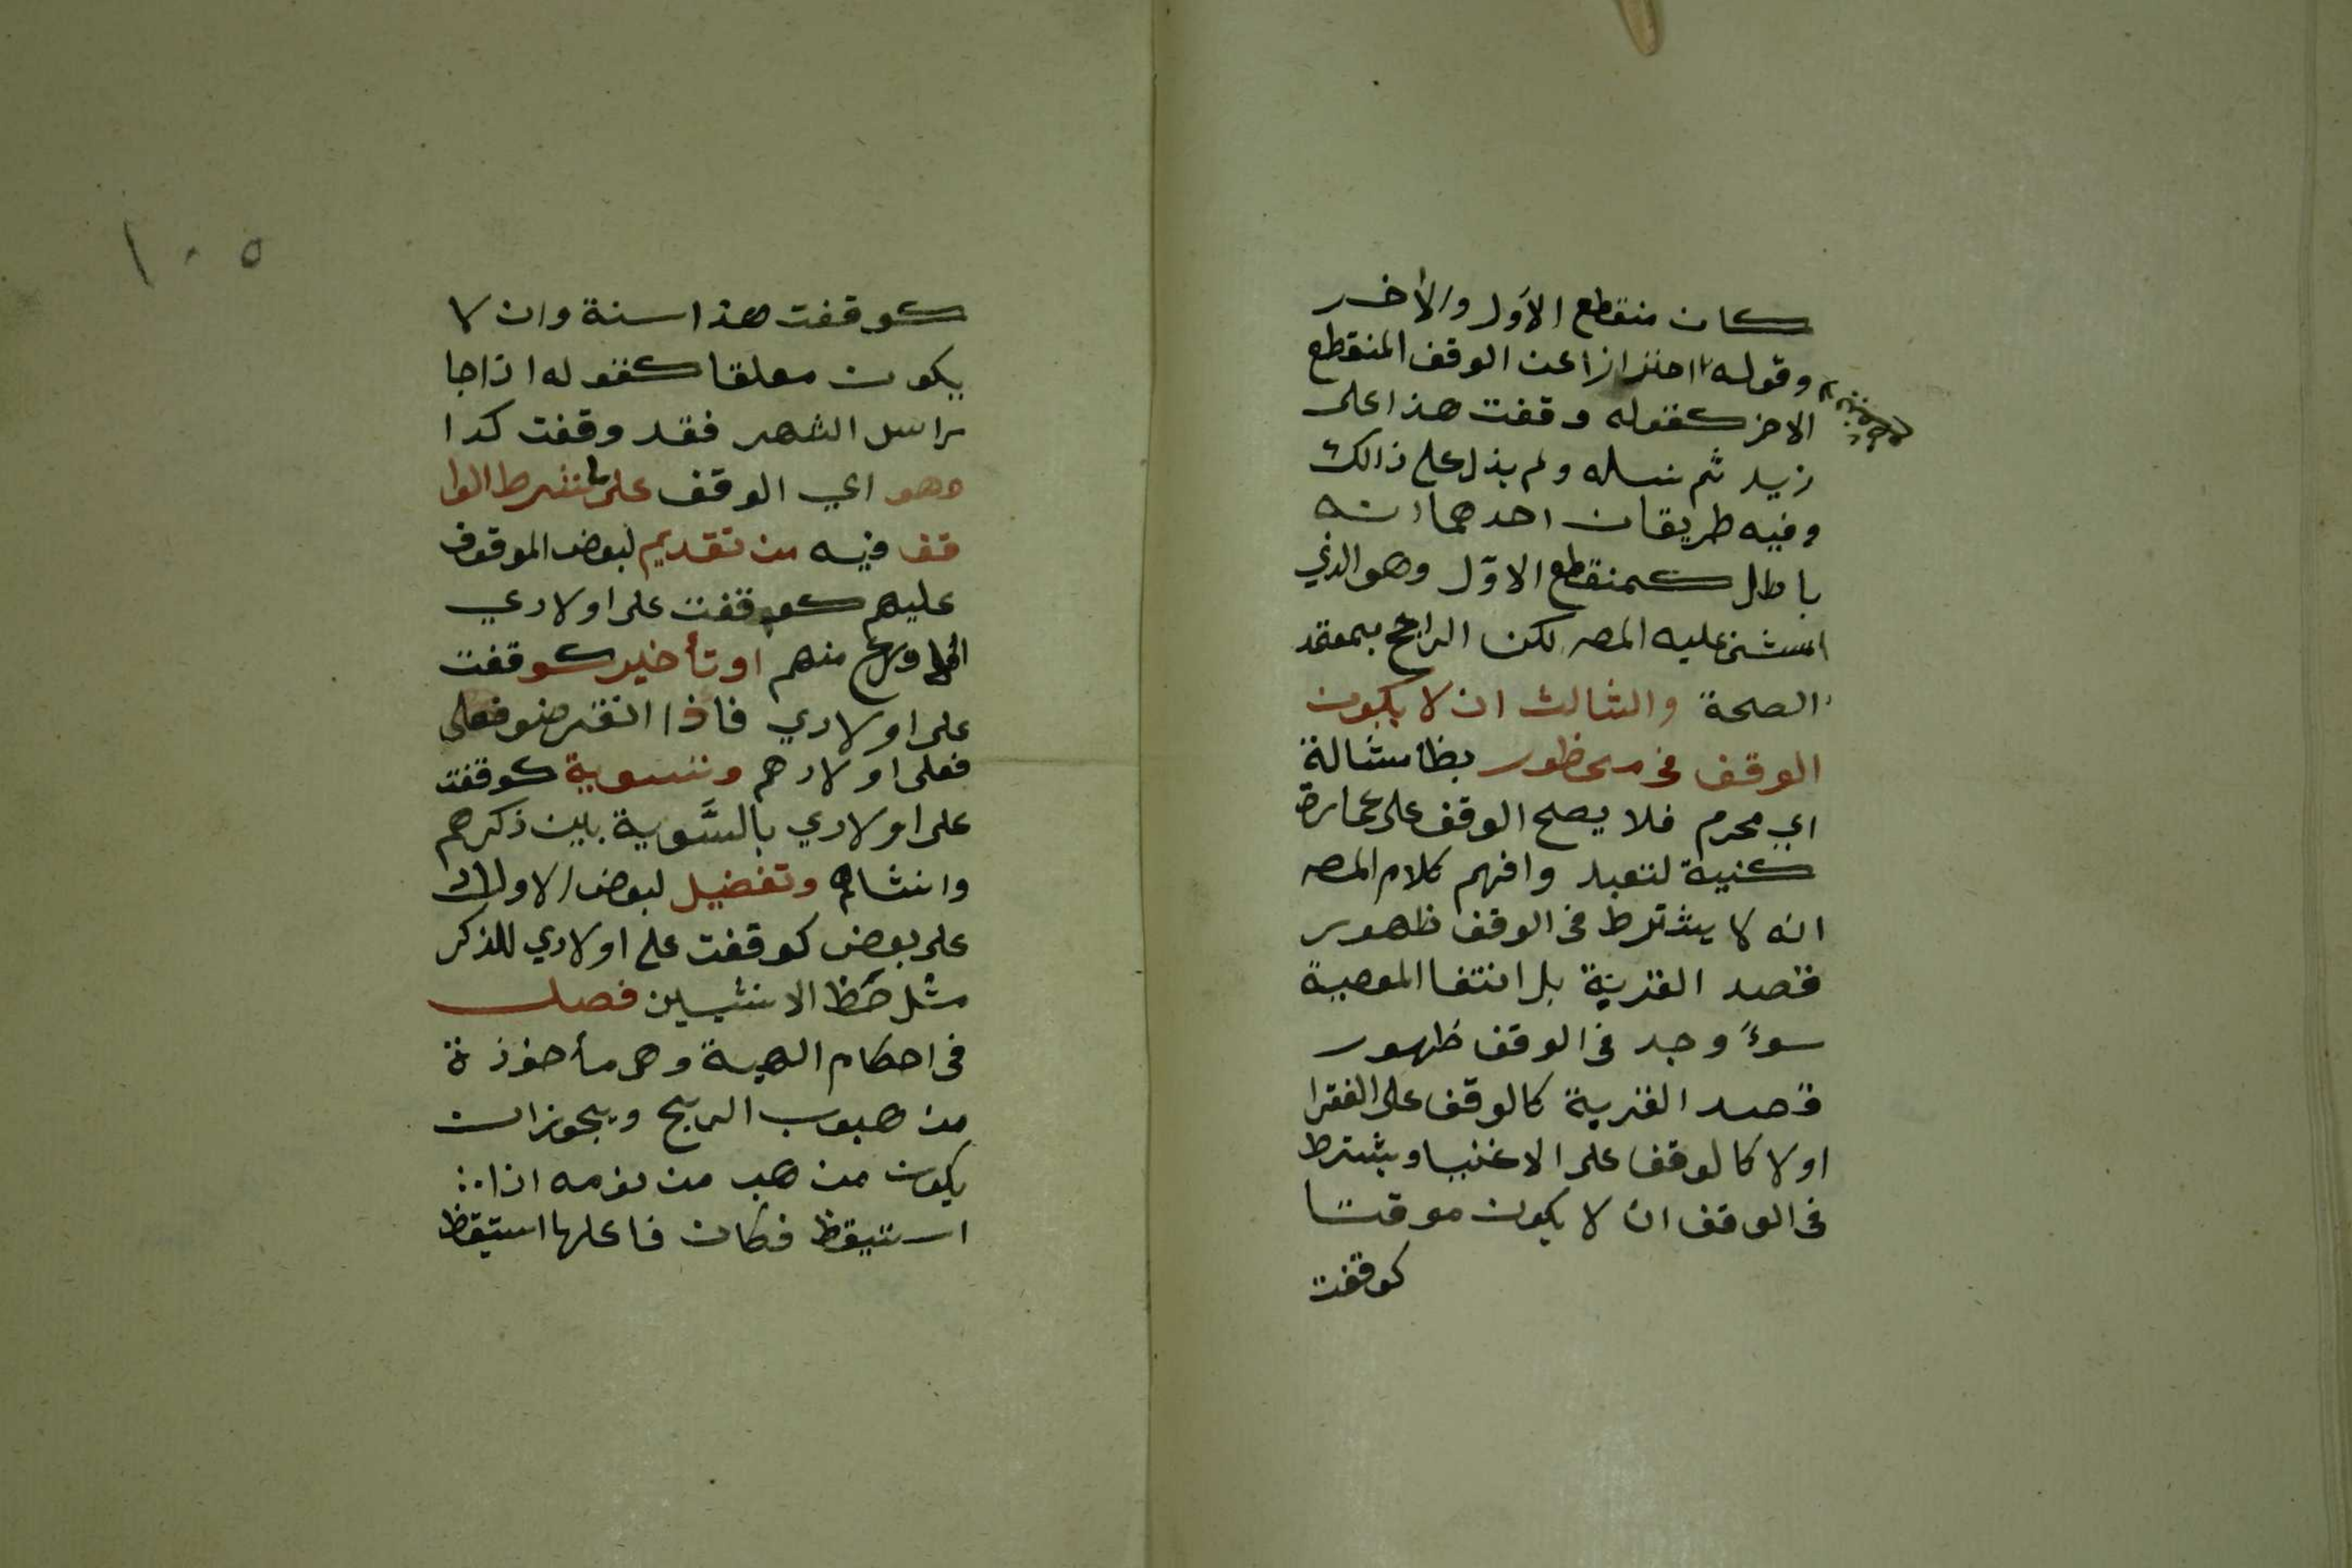 كان منقطع الاول والأخر
وقوله احترازا عن الوقف المنقطع
الاخر كقوله وقفت هذا على
زيد ثم نسله ولم يذل على ذالك
وفيه طريقان احدهما انه
باطل كمنقطع الاوّل وهو الذي
امشى عليه المصه لكن الراجح بمعتمد
الصحة والثالث ان لا يكون
الوقف في محظور بظا مشالة
اي محرم فلا يصح الوقف على عمارة
كنيسة لتعبد وافهم كلام المصه
انه لا يشترط في الوقف ظهور
قصد القربة بل انتفا المعصية
سوءً وجد في الوقف ظهور
قصد القربة كالوقف على الفقرا
اولا كالوقف على الاغنيا ويشترط
في الوقف ان لا يكون موقتا
كوقفت
١٠٥
كوقفت هذا سنة وان لا
يكون معلقا كقوله اذا جا
راس الشهر فقد وقفت كدا
وهو اي الوقف على ما شرط الوا
قف فيه من تقديم لبعض الموقوف
عليهم كوقفت على اولادي
الاورع منهم او تأخير كوقفت
على اولادي فاذا انقرضو فعلى
فعلى اولادهم وتسوية كوقفت
على اولادي بالسَّوية بين ذكرهم
وانثاهم وتفضيل لبعض الاولاد
على بعض كوقفت على اولادي للذكر
مثل حَظ الانثيين فصل
في احكام الهبة وهي مأخوذة
من هبوب الريح ويجوز ان
يكون من هب من نومه اذا
استيقظ فكان فاعلها استيقظ